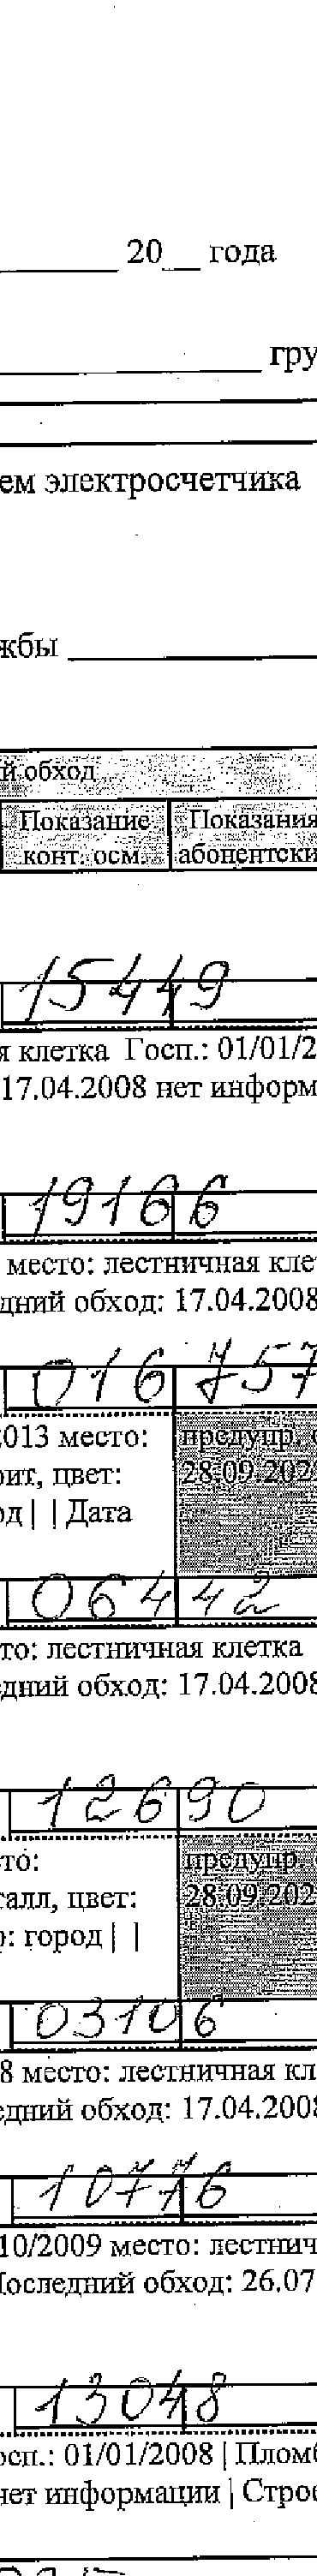 20__ года
гру
ем электросчетчика
жбы
й обход
Показание Показания
конт. осм. абонентски
15449
я клетка Госп.: 01/01/2
17.04.2008 нет информ
19166
место: лестничная кле
дний обход: 17.04.2008
016757
013 место: предупр.
рит, цвет: 28.09.202
од | | Дата
06442
то: лестничная клетка
едний обход: 17.04.2008
12690
то: предупр.
галл, цвет: 28.09.202
р: город | |
03106
8 место: лестничная кл
едний обход: 17.04.2008
10776
10/2009 место: лестнич
Последний обход: 26.07
13048
осп.: 01/01/2008 | Пломб
нет информации | Строе